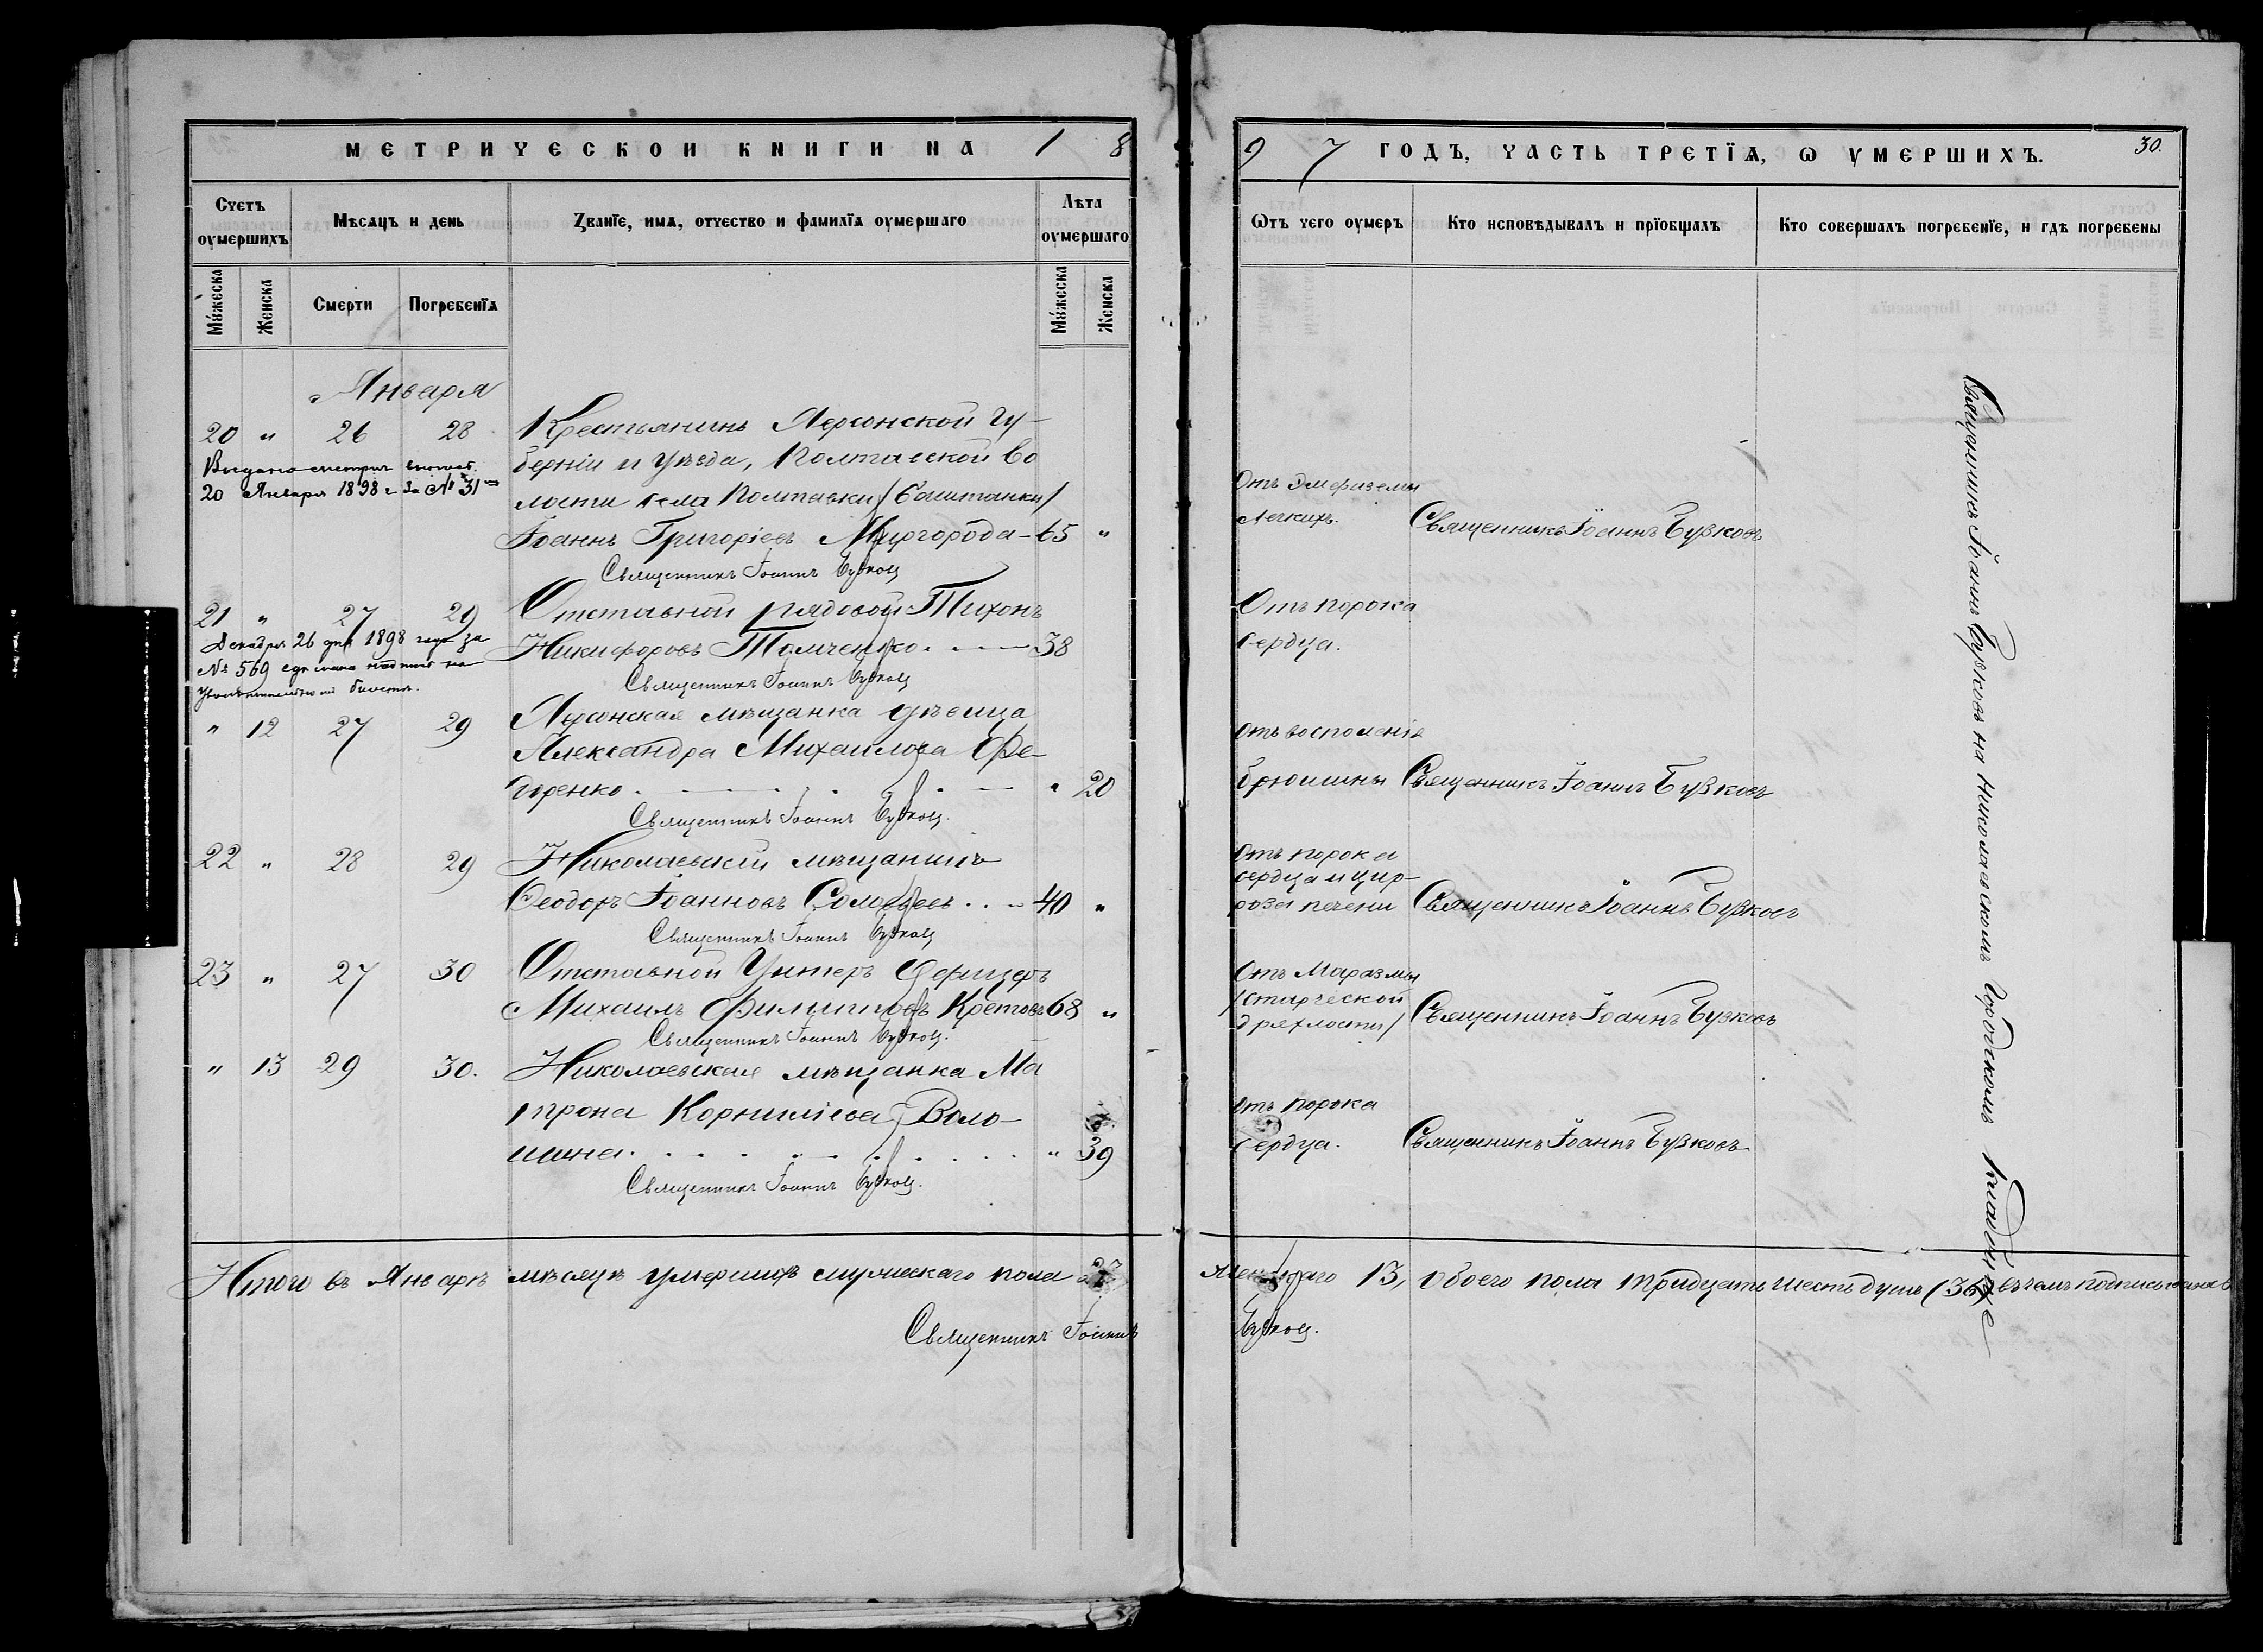 МЕТРИЧЕСКОЙ КНИГИ НА 18
Счетъ оумершихъ
Мѣсяцъ и день
Званїе, имя, отчество и фамилїя оумершаго
Лѣта оумершаго
Мужеска
Женска
Смерти
Погребенїя
Мужеска
Женска
Января
20 " 26 28 Крестьянинъ Херсонской гу-
берніи и уѣзда, Полтавской во
лости села Полтавки /Баштанки/
Іоаннъ Григоріевъ Миргорода - 65 "
Священникъ Іоаннъ Бузковъ
Выдано метрич.
20 Января 1898 г за № 31
21 " 27 29 Отставной рядовой Тихонъ
Никифоровъ Томченко. 38
Священникъ Іоаннъ Бузковъ
Декабря 26 дня 1898 года за
№ 569 сдѣлана надпись на
билетѣ.
" 12 27 29 Херсонская мѣщанка дѣвица
Александра Михаилова Фе-
доренко . " 20
Священникъ Іоаннъ Бузковъ.
22 " 28 29 Николаевскій мѣщанинъ
Ѳеодоръ Іоанновъ Соловьевъ . . - 40 "
Священникъ Іоаннъ Бузковъ
23 " 27 30 Отставной Унтеръ Офицеръ
Михаилъ Филипповъ Кретовъ 68 "
Священникъ Іоаннъ Бузковъ.
" 13 29 30. Николаевская мѣщанка Ма
трона Корниліева Воло-
шина . " 39
Священникъ Іоаннъ Бузковъ.
Итого въ Январѣ мѣсяцѣ умершихъ мужескаго пола 23
Священникъ Іоаннъ
97 ГОДЪ, ЧАСТЬ ТРЕТЇЯ, Ѡ УМЕРШИХЪ. 30.
Ѿтъ чего оумеръ
Кто исповѣдывалъ и прїобщалъ
Кто совершалъ погребенїе, и гдѣ погребены
Отъ эмфиземы
легкихъ. Священникъ Іоаннъ Бузковъ
Отъ порока
сердца.
Отъ восполенія
брюшины Священникъ Іоаннъ Бузковъ
Отъ порока
сердца и цир-
роза печени Священникъ Іоаннъ Бузковъ
Отъ Маразмы
/старческой
дряхлости/ Священникъ Іоаннъ Бузковъ
Отъ порока
сердца. Священникъ Іоаннъ Бузковъ
Священникъ Іоаннъ Бузковъ на Николаевскомъ Городскомъ кладбище
женскаго 13, обоего пола тридцать шесть душъ (36) въ чемъ подписываюсь
Бузковъ.